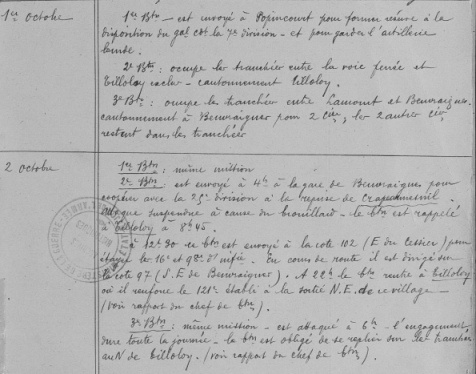 1er Octobre
1er Btn — est envoyé à Popincourt pour former réserve à la
disposition du gal cdt la 7e division — et pour garder l'artillerie
lourde.
2e Btn : occupe les tranchées entre la voie ferrée et
Tilloloy — cantonnement Tilloloy.
3e Btn : occupe les tranchées entre et Beuvraignes.
cantonnement à Beuvraignes pour 2 Cies, les 2 autres Cies
restent dans les tranchées
2 Octobre
1er Btn : même mission
2e Btn : est envoyé à 4h à la gare de Beuvraignes pour
coopérer avec la 25e division à la reprise de Crapeaumesnil —
attaque suspendue à cause du brouillard — le btn est rappelé
à Tilloloy à 8h45.
à 12h30 ce btn est envoyé à la cote 102 (E du Cessier) pour
étayer le 16e et 98e d'infie. En cours de route il est dirigé sur
la cote 97 (S.E de Beuvraignes). A 22h le btn rentre à Tilloloy
où il renforce le 121e établi à la sortie N.E. de ce village —
(voir rapport du chef de btn).
3e Btn : même mission — est attaqué à 6h — l'engagement
dure toute la journée — le btn est obligé de se replier sur les tranchées
au N de Tilloloy. (voir rapport du chef de btn)